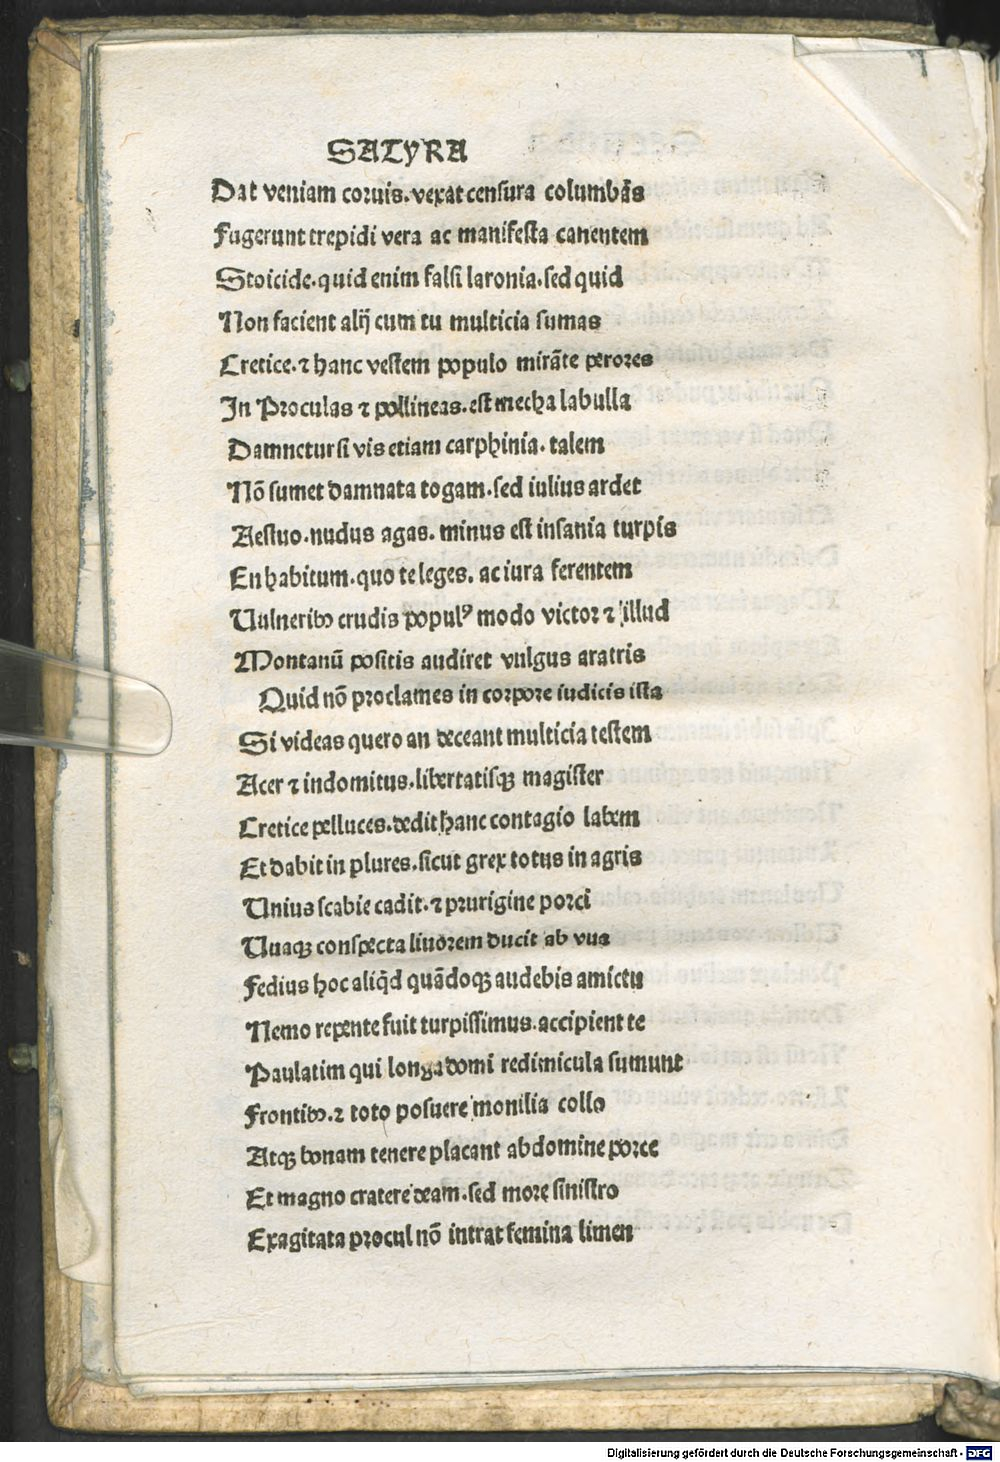 SATYRA
Dat veniam coruis. vexat censura columbās
Fugerunt trepidi vera ac manifesta canentem
Stoicide. quid enim falsi laronia. sed quid
Non facient alij cum tu multicia sumas
Cretice. ⁊ hanc vestem populo mirāte perores
In Proculas ⁊ pollineas. est mecha labulla
Damnetur si vis etiam carphinia. talem
Nō sumet damnata togam. sed iulius ardet
Aestuo. nudus agas. minus est insania turpis
En habitum. quo te leges. ac iura ferentem
Vulneribꝫ crudis populꝰ modo victor ⁊ illud
Montanū positis audiret vulgus aratris
Quid nō proclames in corpore iudicis ista
Si videas quero an deceant multicia testem
Acer ⁊ indomitus. libertatisqꝫ magister
Cretice pelluces. dedit hanc contagio labem
Et dabit in plures. sicut grex totus in agris
Unius scabie cadit. ⁊ prurigine porci
Uuaqꝫ conspecta liuorem ducit ab vua
Fedius hoc aliq̄d quādoqꝫ audebis amictu
Nemo repente fuit turpissimus. accipient te
Paulatim qui longa domi redimicula sumunt
Frontibꝫ. ⁊ toto posuere monilia collo
Atqꝫ bonam tenere placant abdomine porce
Et magno cratere deam. sed more sinistro
Exagitata procul nō intrat femina limen
Digitalisierung gefördert durch die Deutsche Forschungsgemeinschaft - DFG